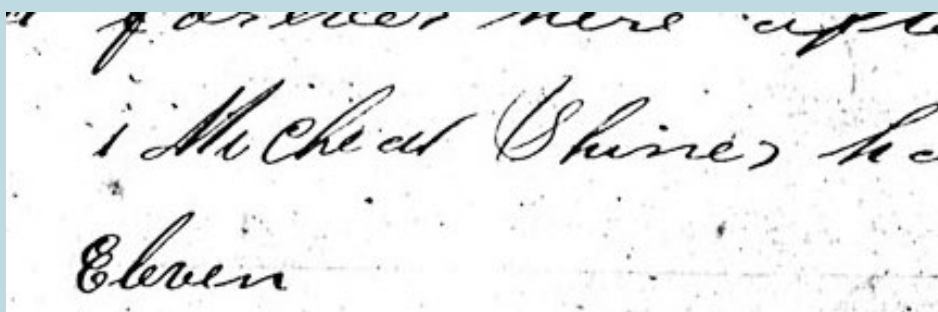 forever here afte
i Micheal Shiner ha
Eleven